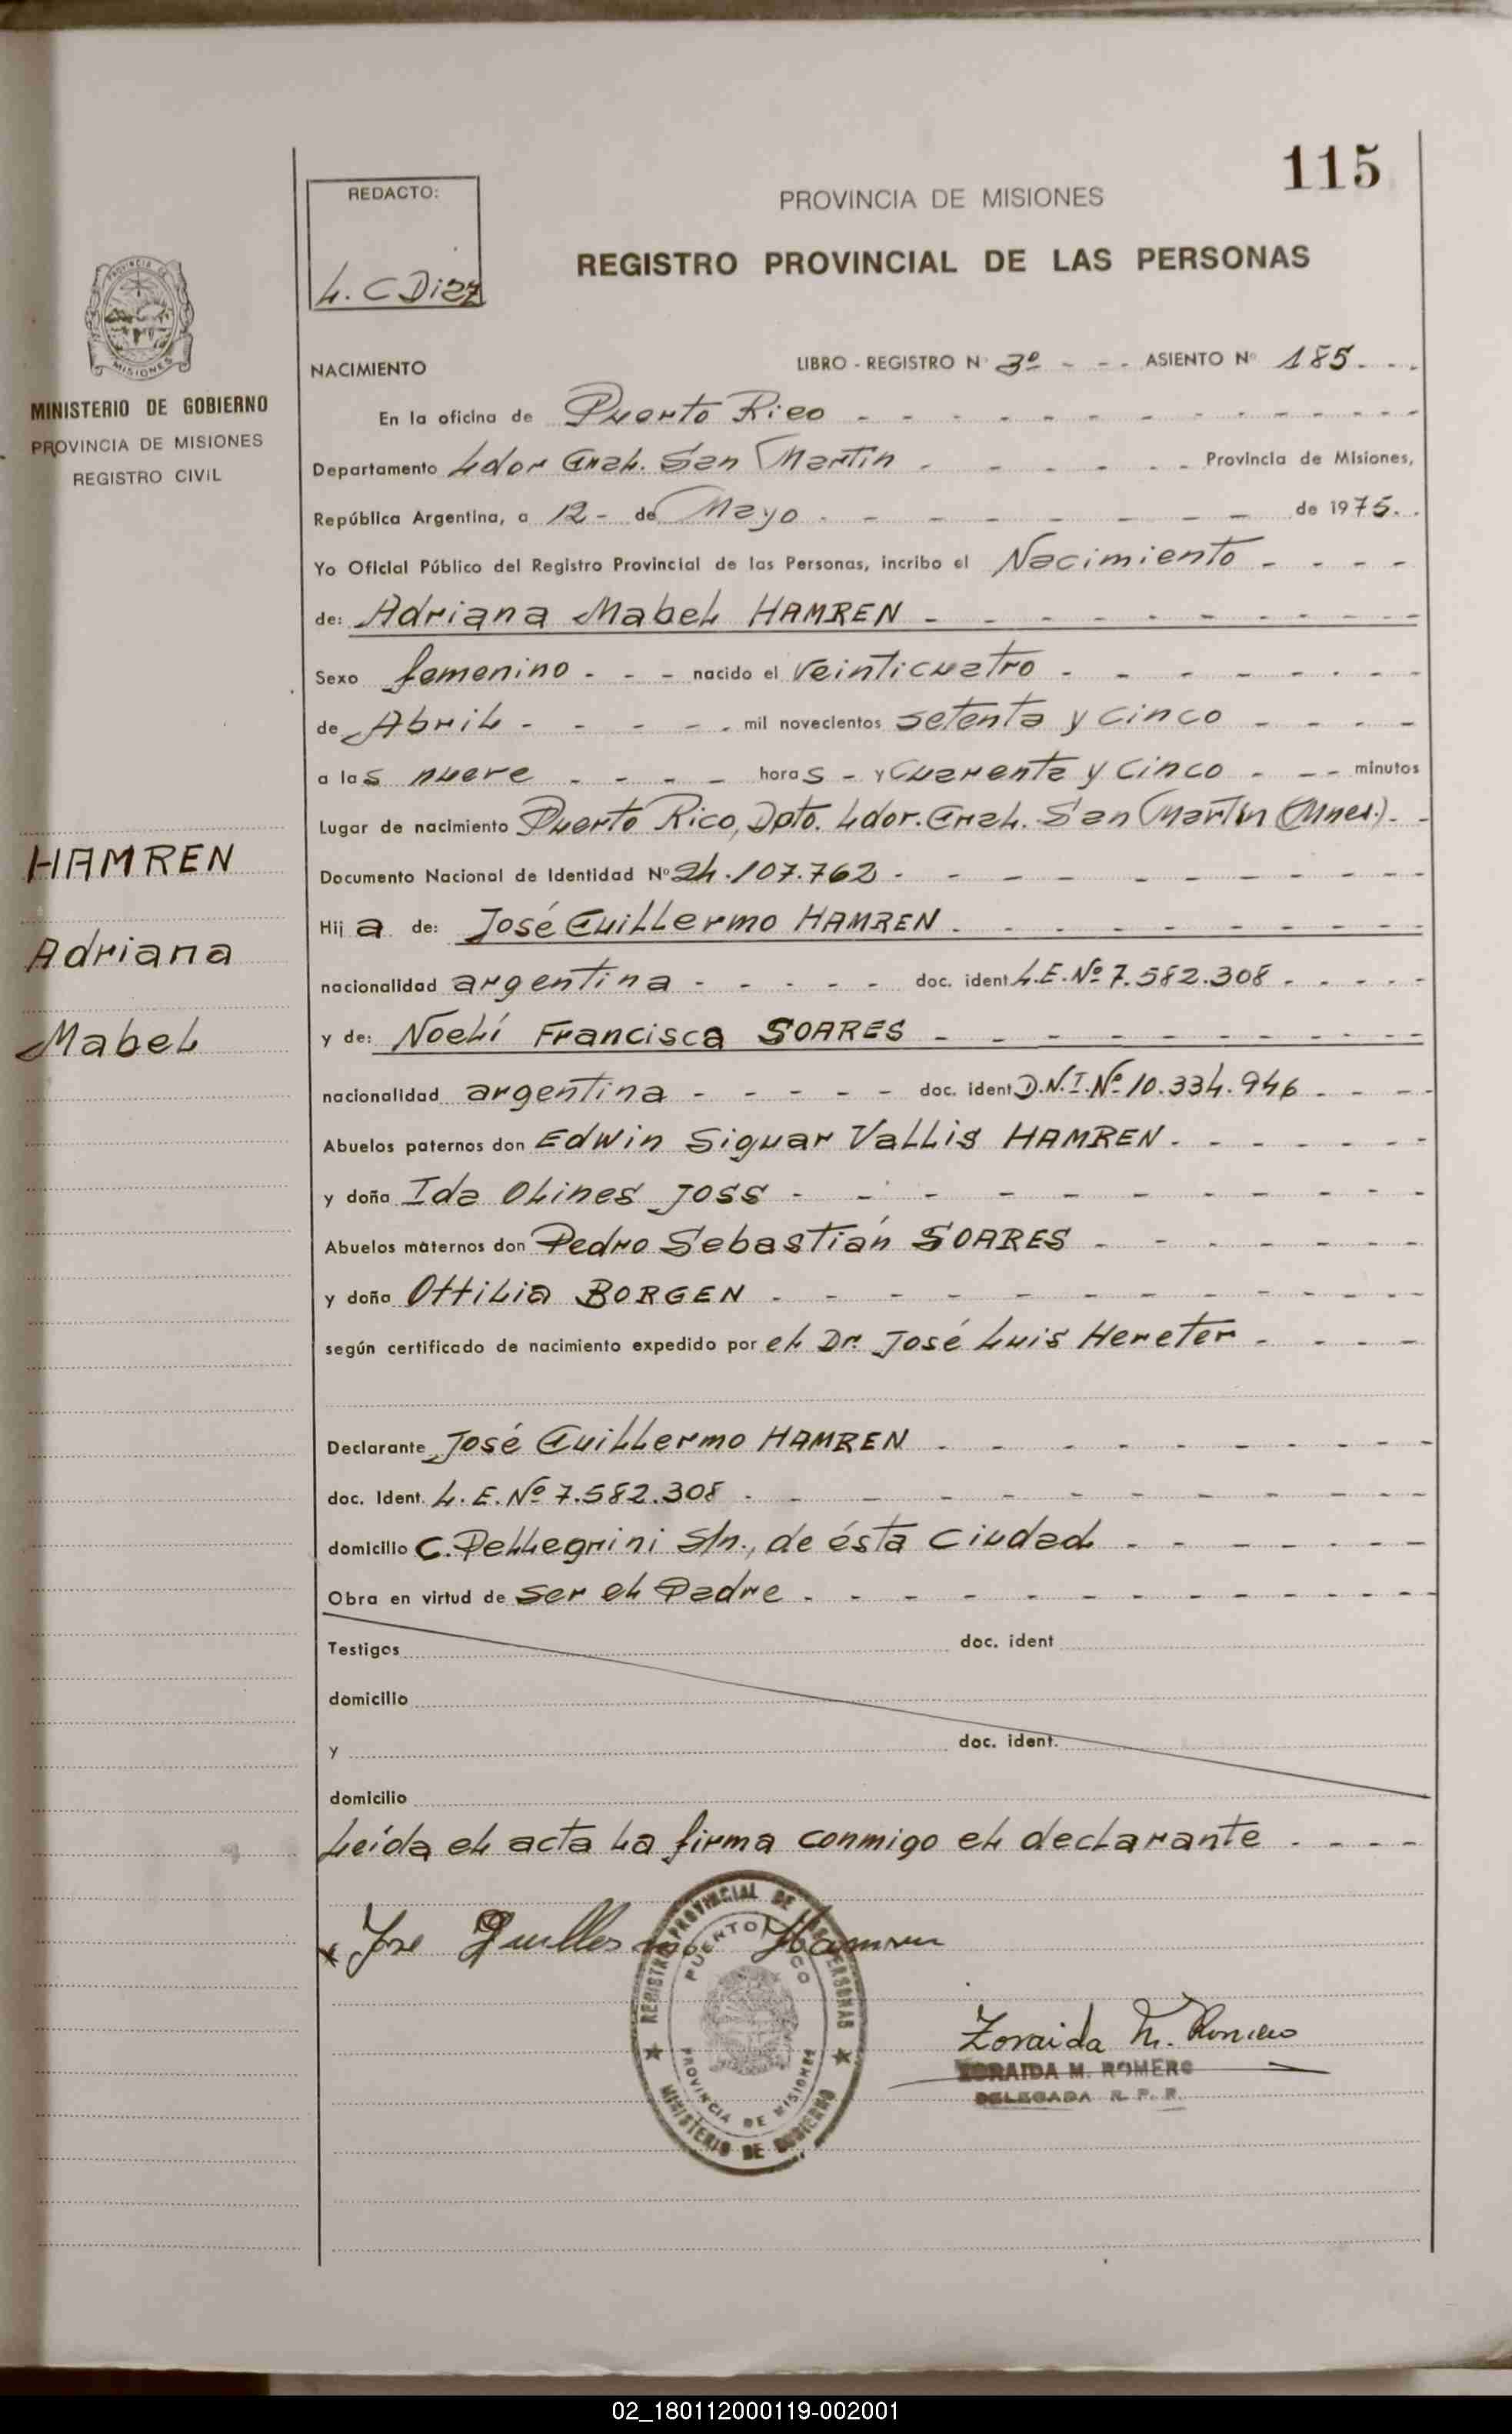 115
REDACTO:
L. C Diaz
PROVINCIA DE MISIONES
REGISTRO PROVINCIAL DE LAS PERSONAS
PROVINCIA DE
MISIONES
MINISTERIO DE GOBIERNO
PROVINCIA DE MISIONES
REGISTRO CIVIL
HAMREN
Adriana
Mabel
NACIMIENTO LIBRO - REGISTRO N° 3º - - - ASIENTO N° 185 - - -
En la oficina de Puerto Rico
Departamento Ldor Gral. San Martín - - - Provincia de Misiones,
República Argentina, a 12 - de Mayo - - - de 1975.
Yo Oficial Público del Registro Provincial de las Personas, incribo el Nacimiento
de: Adriana Mabel HAMREN
Sexo femenino - - - nacido el veinticuatro
de Abril - - - mil novecientos setenta y cinco
a las nueve - - - horas - y cuarenta y cinco - - - minutos
Lugar de nacimiento Puerto Rico, Dpto. Ldor. Gral. San Martín (Mnes.).
Documento Nacional de Identidad N° 24.107.762
Hija de: José Guillermo HAMREN
nacionalidad argentina - - - doc. ident L.E. Nº 7.582.308
y de: Noelí Francisca SOARES
nacionalidad argentina - - - doc. ident D.N.I. Nº 10.334.946
Abuelos paternos don Edwin Siguar Vallis HAMREN
y doña Ida Olines JOSS
Abuelos maternos don Pedro Sebastián SOARES
y doña Ottilia BORGEN
según certificado de nacimiento expedido por el Dr. José Luis Hereter
Declarante José Guillermo HAMREN
doc. Ident. L. E. Nº 7.582.308
domicilio C. Pellegrini S/n., de ésta Ciudad
Obra en virtud de ser el Padre
Testigos doc. ident
domicilio
y doc. ident.
domicilio
Leída el acta la firma conmigo el declarante
Jose Guillermo Hamren
REGISTRO PROVINCIAL DE LAS PERSONAS
PUERTO RICO
PROVINCIA DE MISIONES
MINISTERIO DE GOBIERNO
Zoraida M. Romero
ZORAIDA M. ROMERO
DELEGADA R. P. P.
02_180112000119-002001